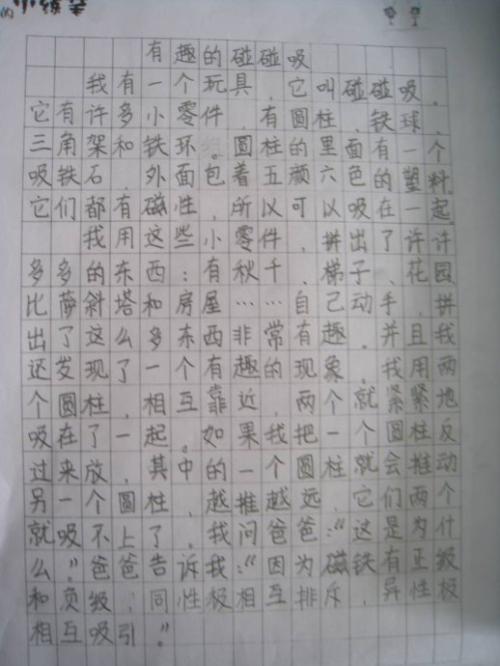 的 小练笔
有趣的碰碰吸
我有一个玩具，它叫碰碰吸。
它有许多小零件，有圆柱、铁球、
三角架和铁环。圆柱的里面有一个
吸铁石，外面包着五颜六色的塑料，
它们都有磁性，所以可以吸在一起。
我用这些小零件，拼出了许许
多多的东西：有秋千、梯子、花园、
比萨斜塔和房屋……自己动手，拼
出了这么多东西非常有趣。并且我
还发现了一个有趣的现象。我用两
个圆柱，相互靠近，两个就紧紧地
吸在了一起。如果我把一个圆柱反
过来放，其中的一个圆柱就会推动
另一个圆柱，越推越远，它们两个
就吸不上了。我问爸爸：“这是为什
么？”爸爸告诉我：“因为磁铁有正级
和负级，同性极相互排斥，异性极
相互吸引。”